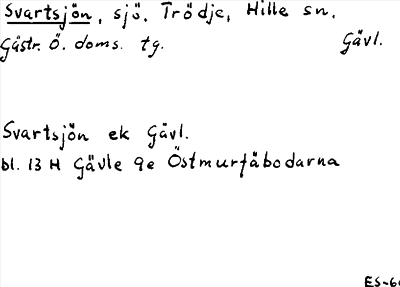 Svartsjön, sjö. Trödje, Hille sn.
Gästr. Ö. doms. tg. Gävl.
Svartsjön ek Gävl.
bl. 13 H Gävle 9e Östmurfäbodarna